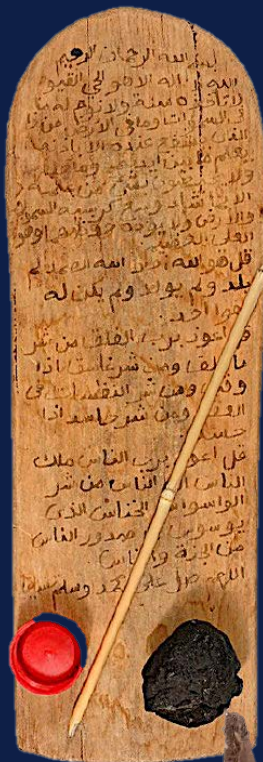 بسم الله الرحمان الرحيم
الله لا اله الا هو الحي القيوم
لا تاخذه سنة ولا نوم له ما
في السموات وما في الارض من ذا
الذي يشفع عنده الا باذنه
يعلم ما بين ايديهم وما خلفهم
ولا يحيطون بشيء من علمه
الا بما شاء وسع كرسيه السموات
والارض ولا يوده حفظهما وهو
العلي العظيم
قل هو الله احد الله الصمد لم
يلد ولم يولد ولم يكن له
كفوا احد
قل اعوذ برب الفلق من شر
ما خلق ومن شر غاسق اذا
وقب ومن شر النفثات في
العقد ومن شر حاسد اذا
حسد
قل اعوذ برب الناس ملك
الناس اله الناس من شر
الوسواس الخناس الذي
يوسوس في صدور الناس
من الجنة والناس
اللهم صل على محمد وسلم